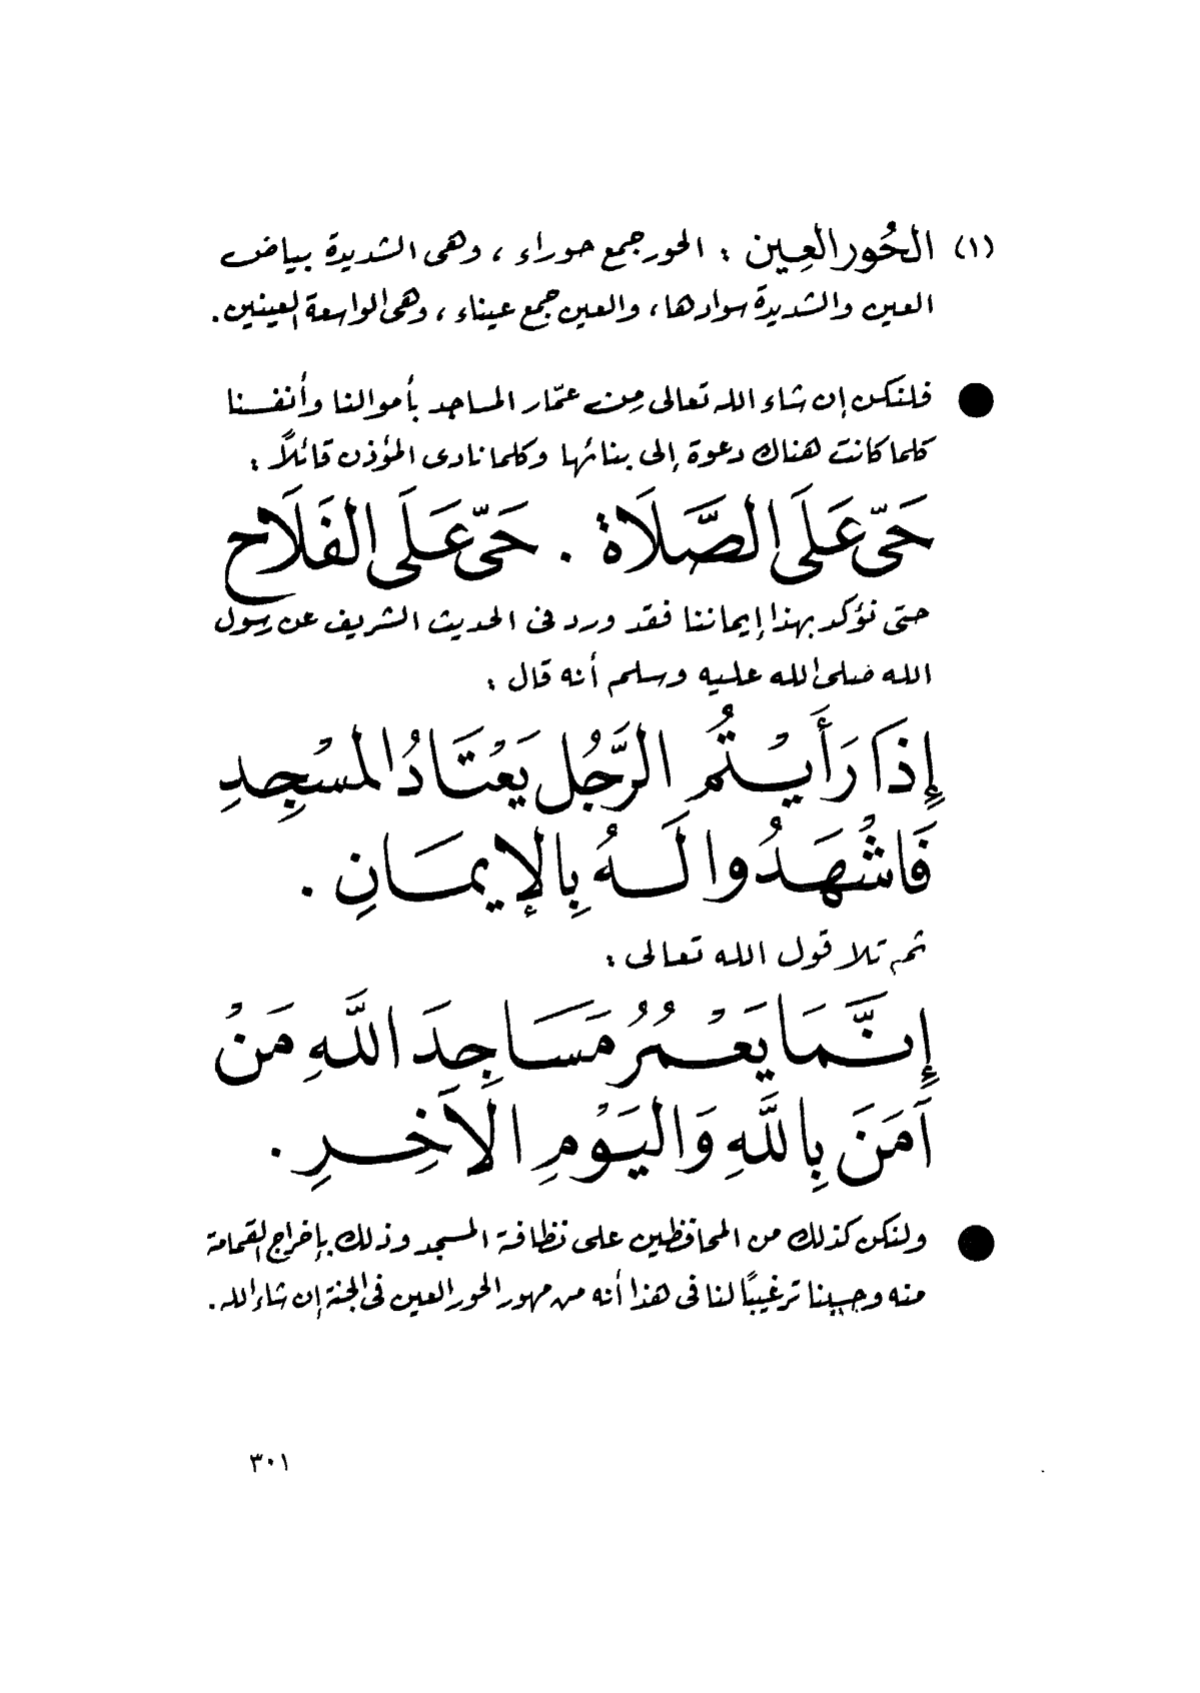 (١) الحُور العِين : الحور جمع حوراء ، وهى الشديدة بياض
العين والشديدة سوادها ، والعين جمع عيناء ، وهى الواسعة العينين .
● فلنكن إن شاء الله تعالى من عمّار المساجد بأموالنا وأنفسنا
كلما كانت هناك دعوة إلى بنائها وكلما نادى المؤذن قائلاً :
حَىّ عَلَى الصَّلَاة . حَىّ عَلَى الفَلَاح
حتى نؤكد بهذا إيماننا فقد ورد فى الحديث الشريف عن رسول
الله صلى الله عليه وسلم أنه قال :
إِذَا رَأَيْتُمُ الرَّجُلَ يَعْتَادُ المسْجِدِ
فَاشْهَدُوا لَهُ بِالإيمَانِ .
ثم تلا قول الله تعالى :
إِنَّمَا يَعْمُرُ مَسَاجِدَ اللَّهِ مَنْ
آمَنَ بِاللَّهِ وَاليَوْمِ الآخِرِ .
● ولنكن كذلك من المحافظين على نظافة المسجد وذلك بإخراج القمامة
منه وحسبنا ترغيبًا لنا فى هذا أنه من مهور الحور العين فى الجنة إن شاء الله .
٣٠١